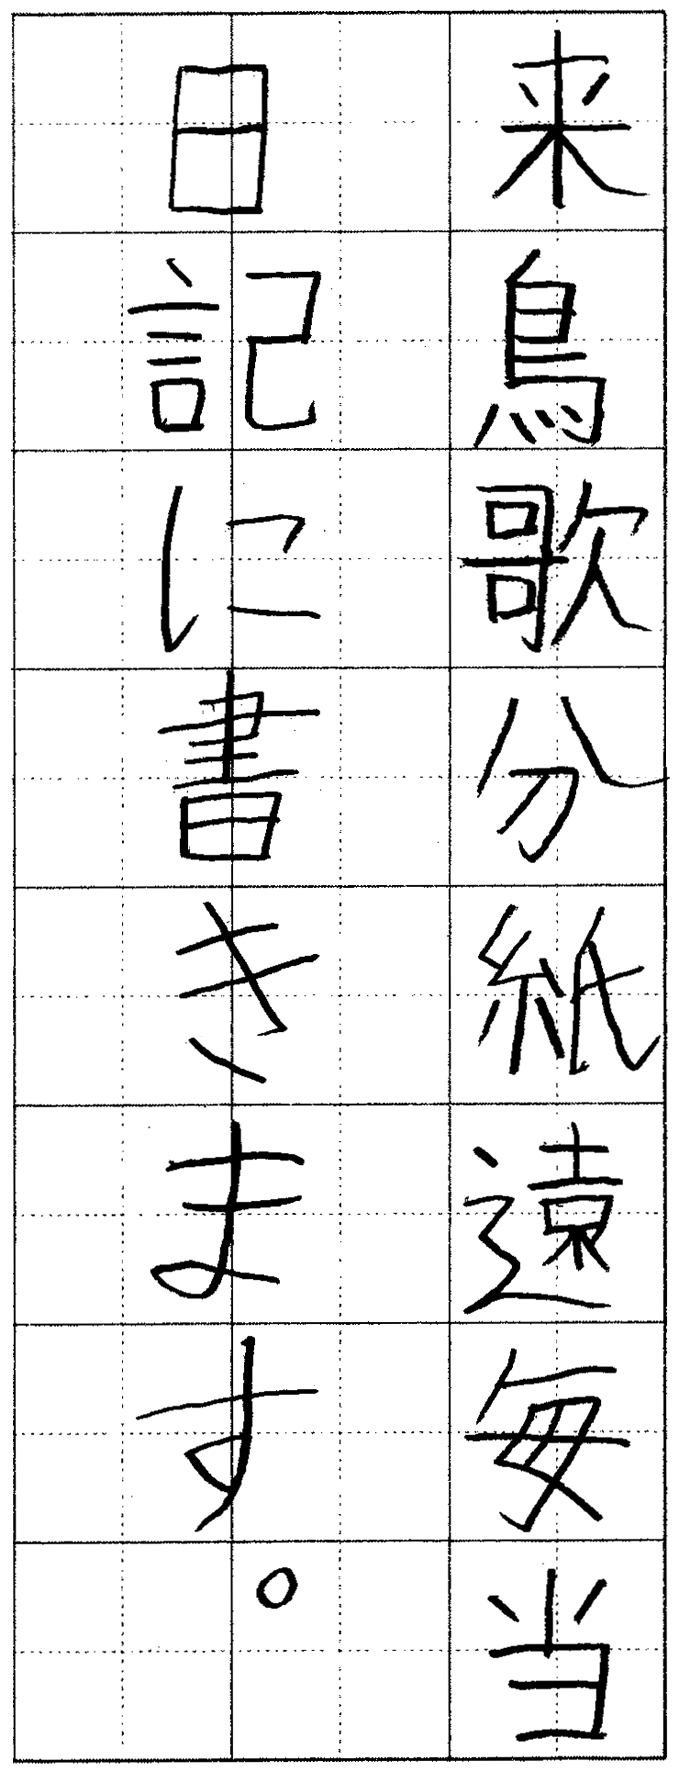 来鳥歌分紙遠毎当
日記に書きます。